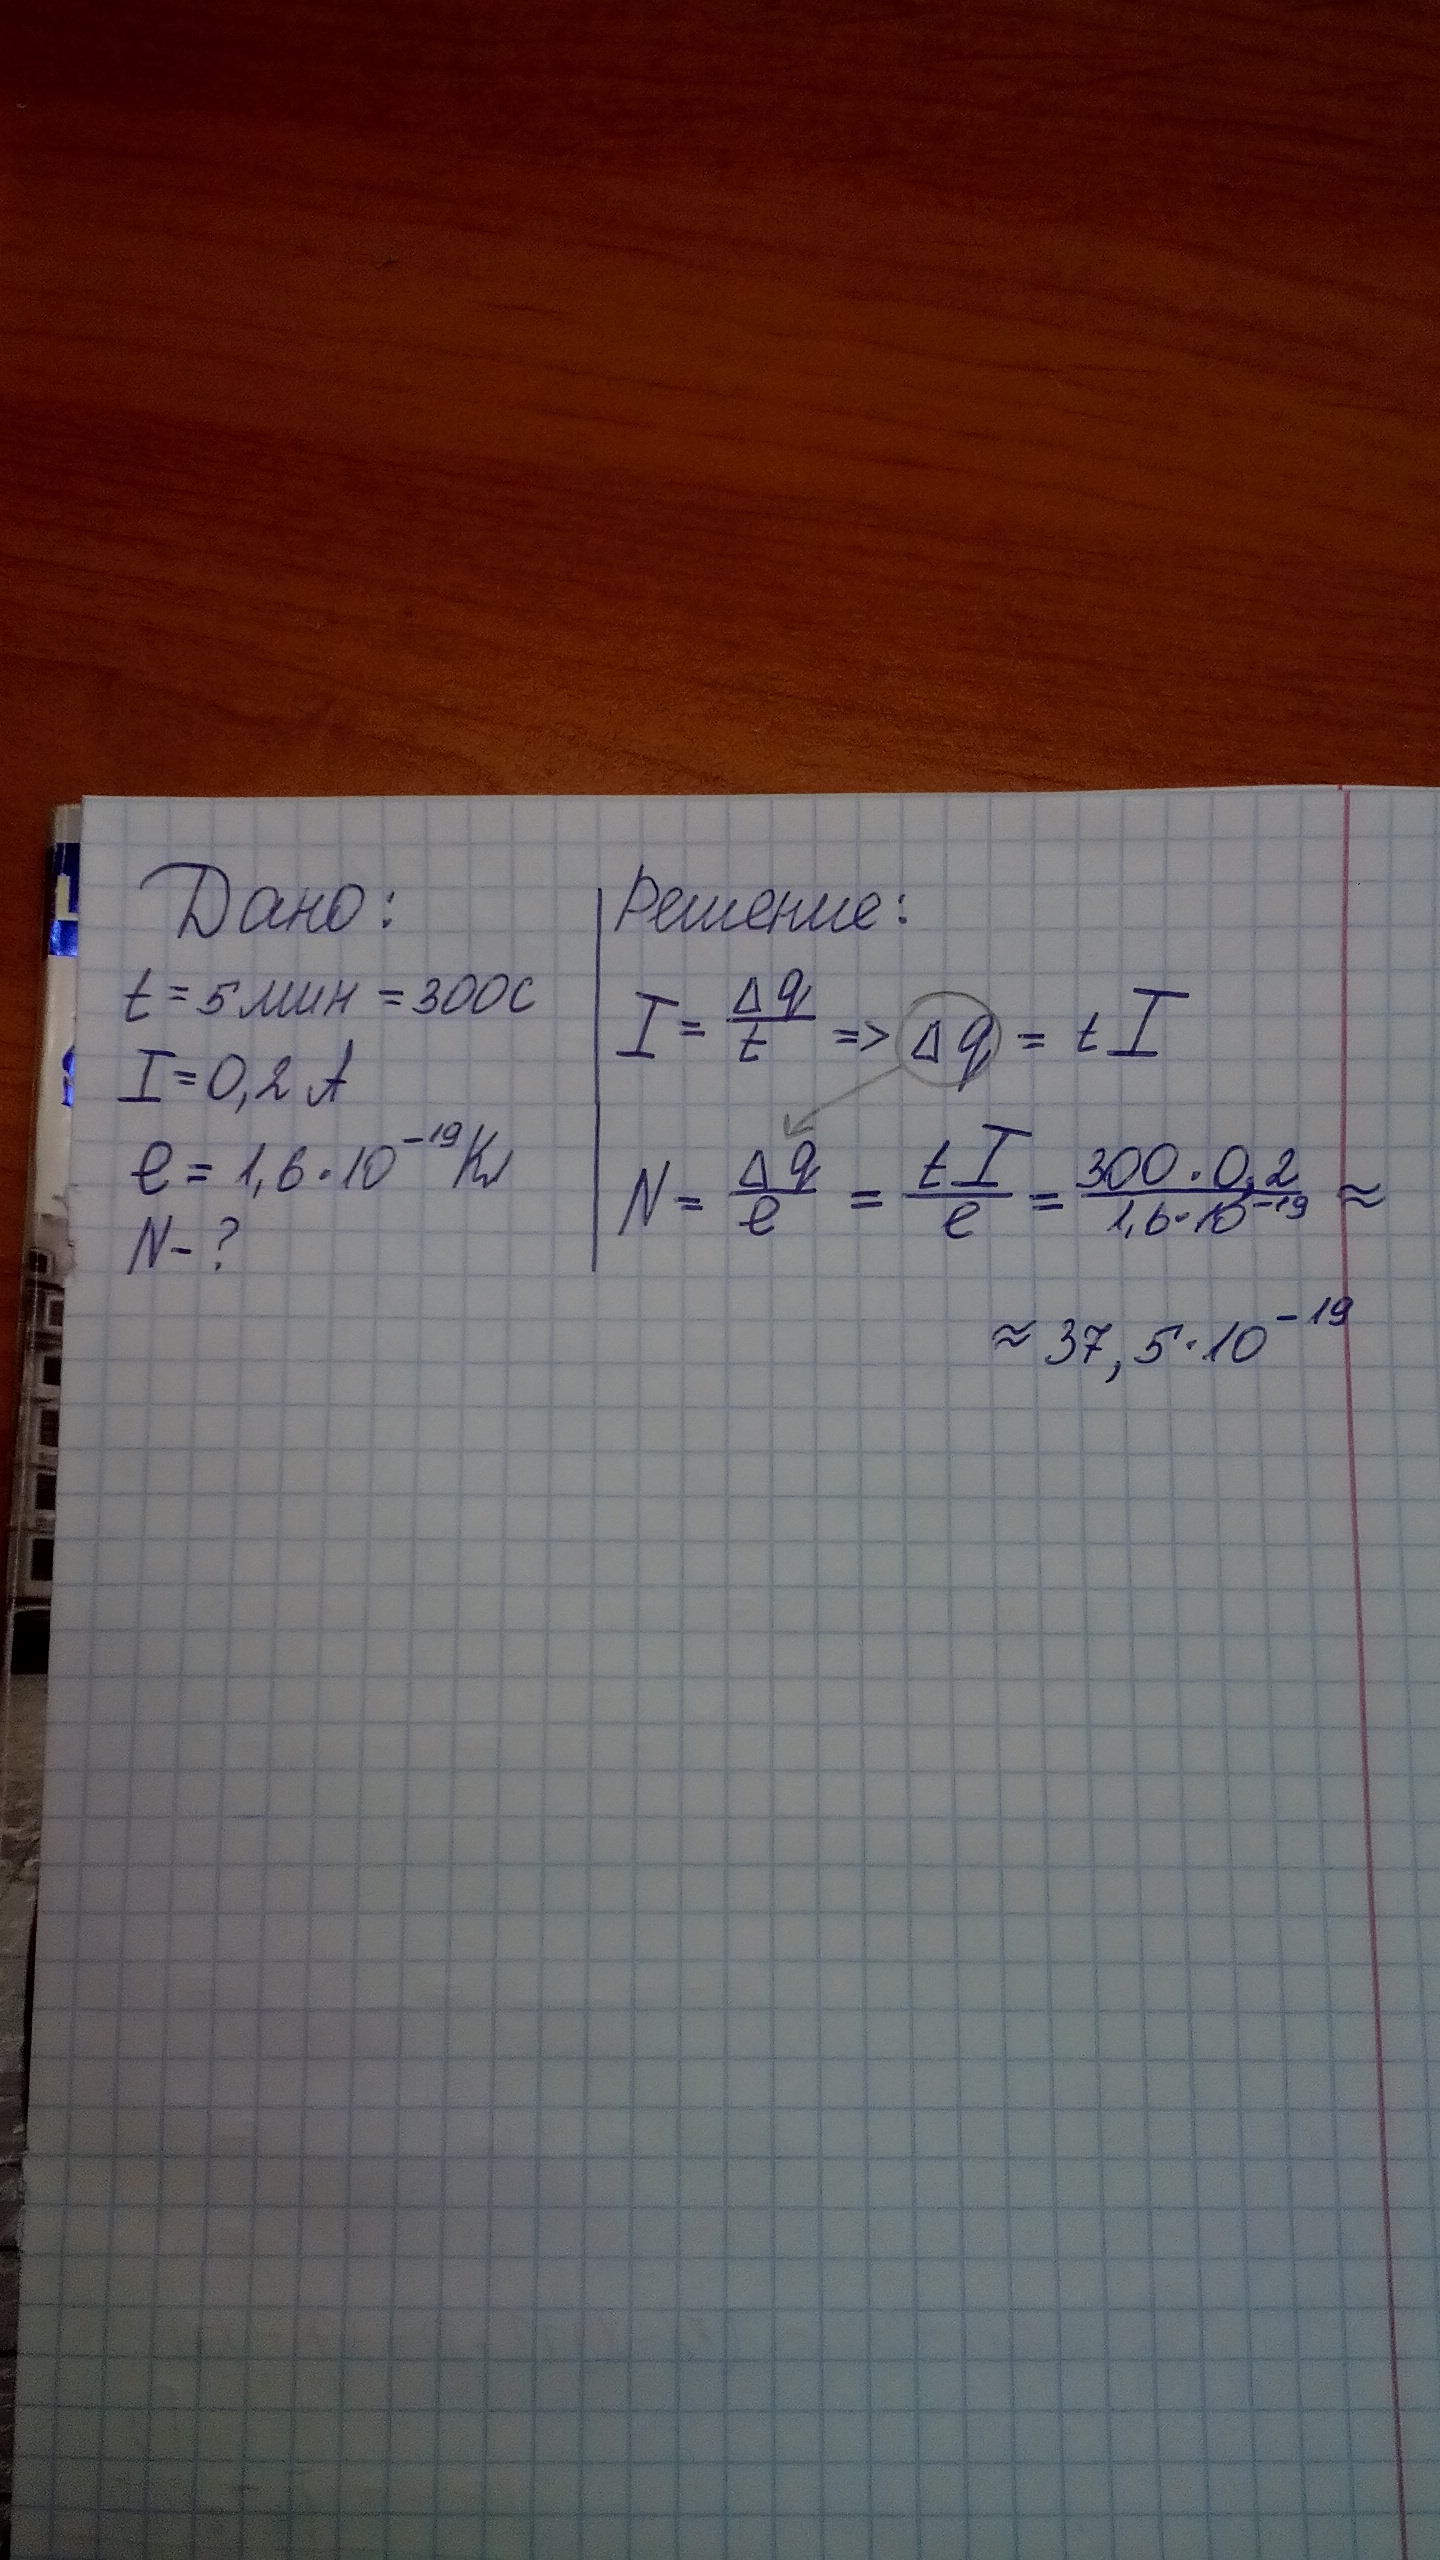 Дано:
t = 5 мин = 300с
I = 0,2 А
e = 1,6·10⁻¹⁹ Кл
N - ?
Решение:
I = Δq/t => Δq = tI
N = Δq/e = tI/e = 300·0,2/1,6·10⁻¹⁹ ≈
≈ 37,5·10⁻¹⁹